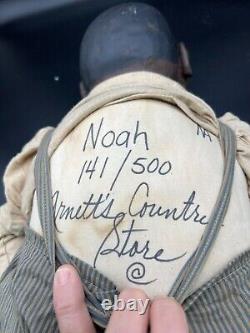 Noah
NA
141/500
Arnett's Countre
Store
@